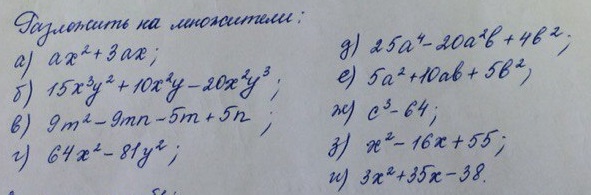 Разложить на множители:
а) ax² + 3ax;
б) 15x³y² + 10x²y - 20x²y³;
в) 9m² - 9mn - 5m + 5n;
г) 64x² - 81y²;
д) 25a⁴ - 20a²b + 4b²;
е) 5a² + 10ab + 5b²;
ж) c³ - 64;
з) x² - 16x + 55;
и) 3x² + 35x - 38.